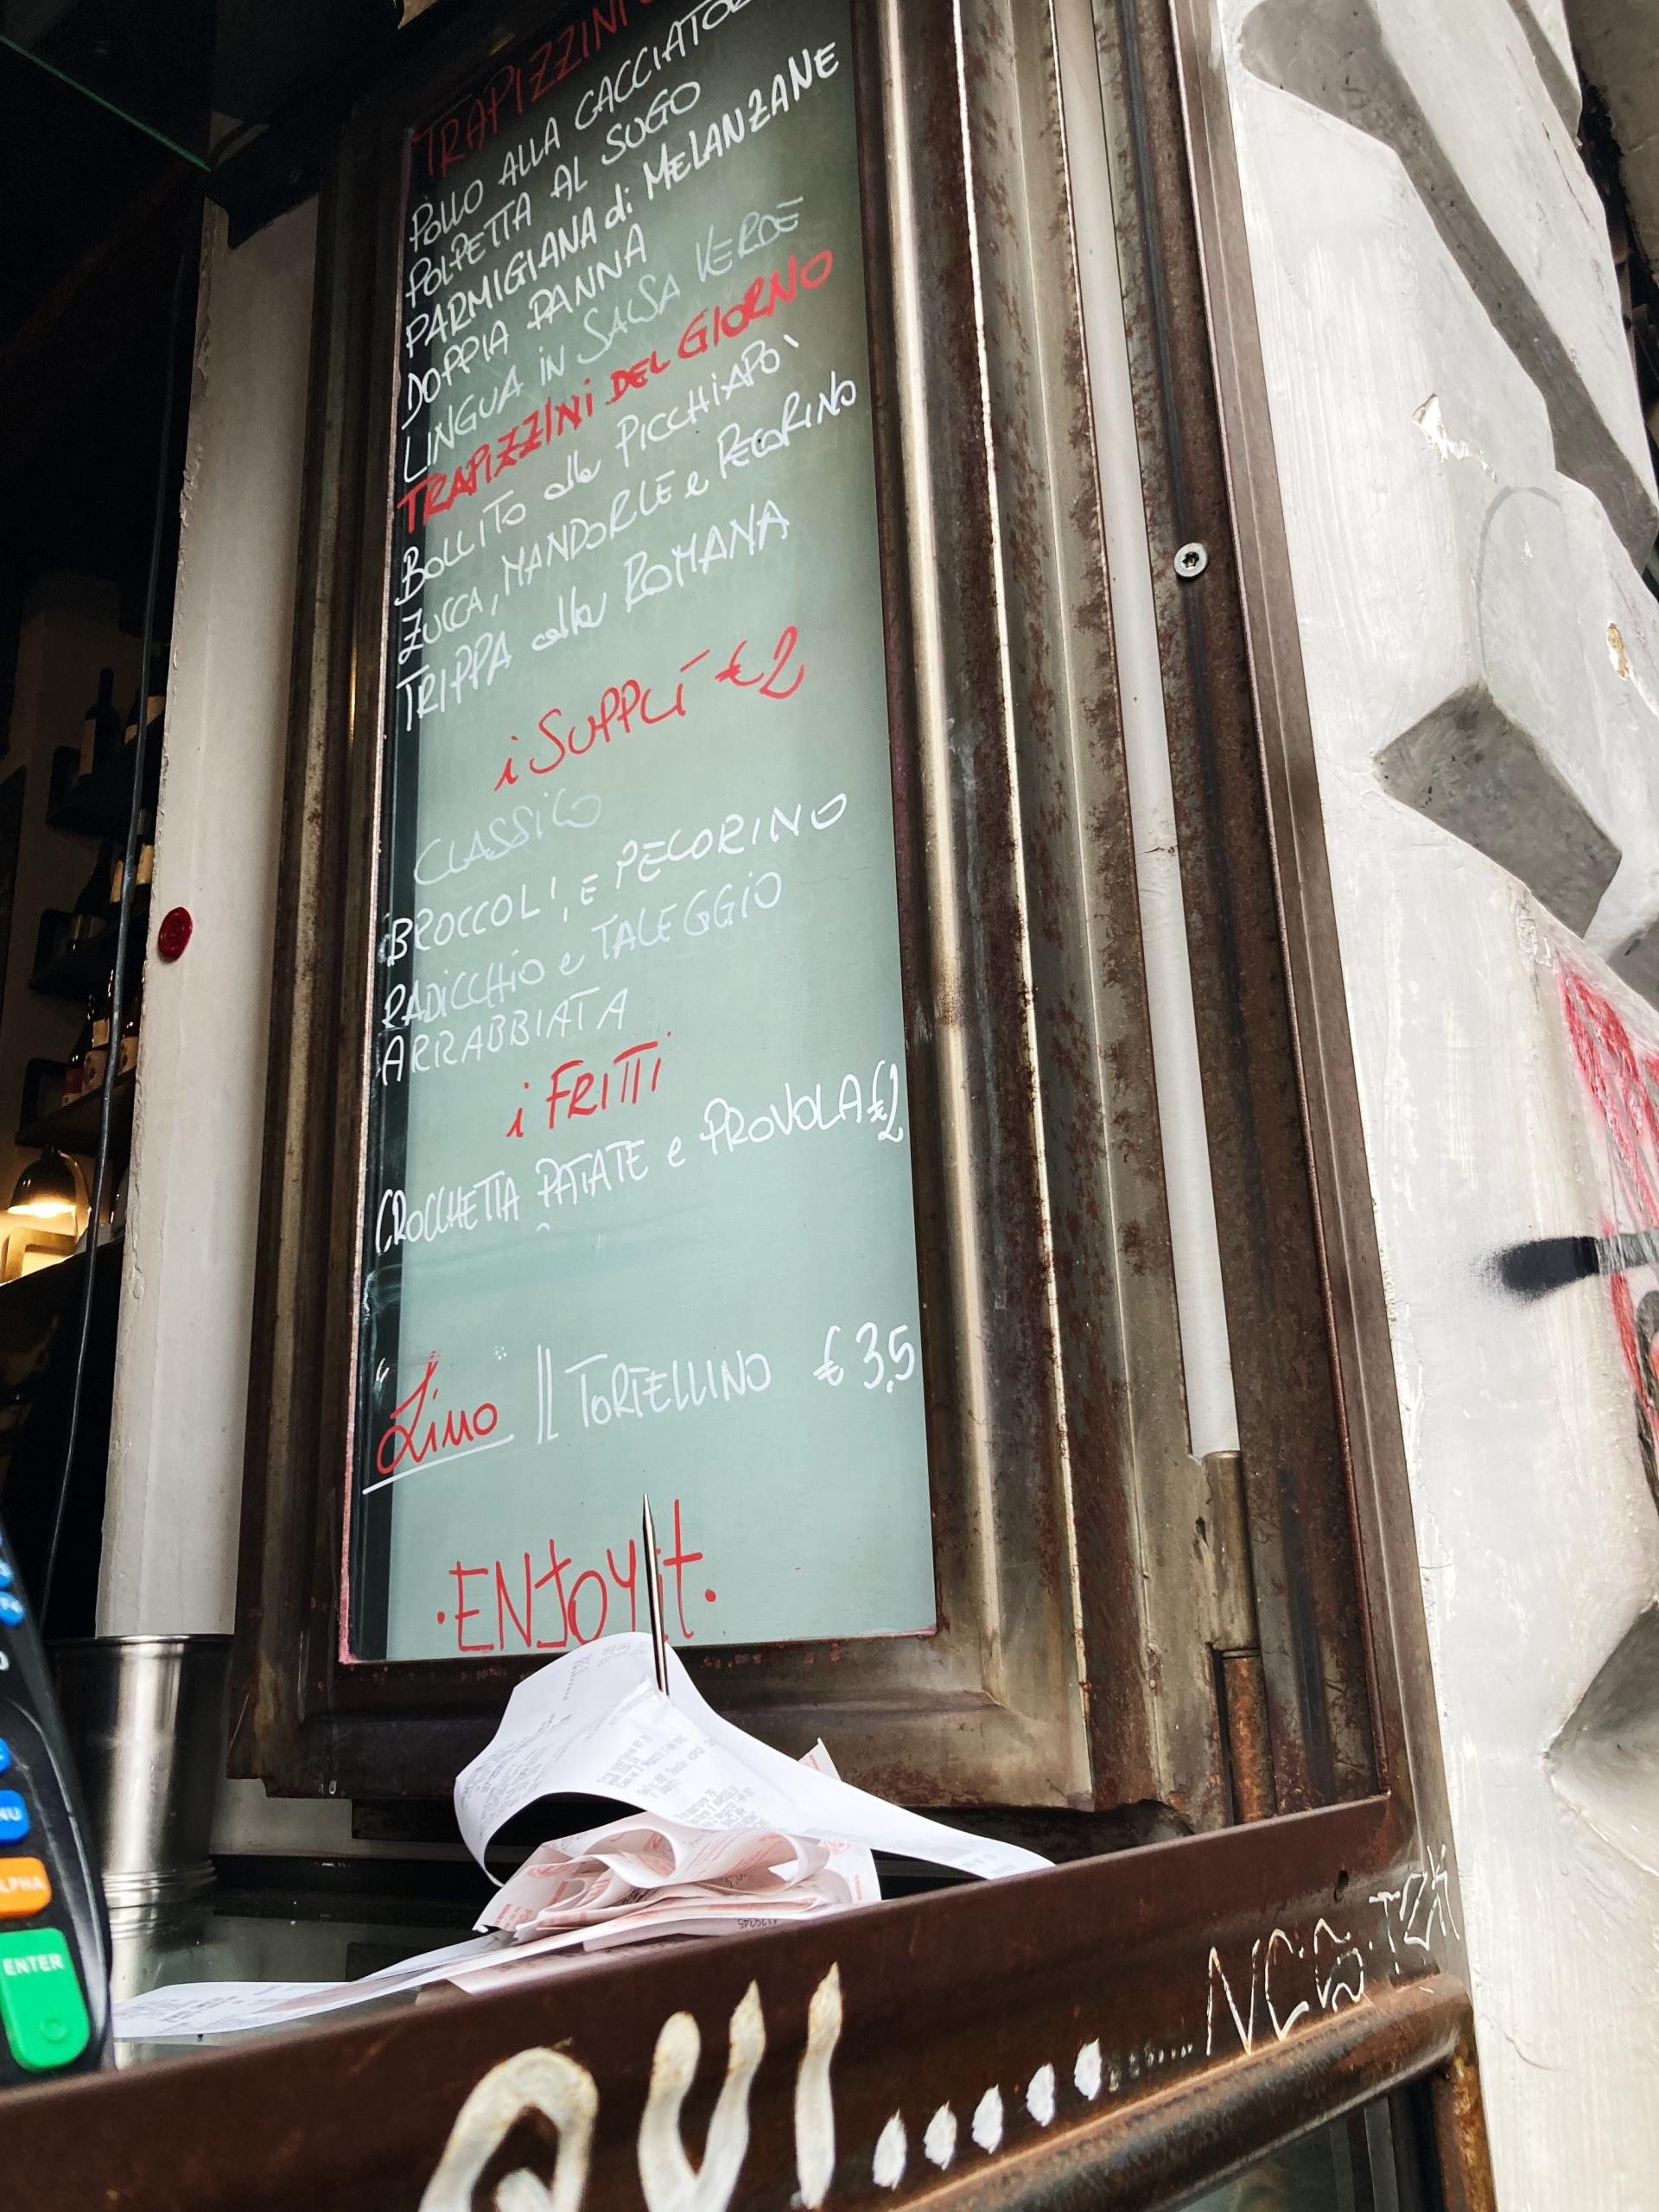 TRAPIZZINI
POLLO ALLA CACCIATORA
POLPETTA AL SUGO
PARMIGIANA di MELANZANE
DOPPIA PANNA
LINGUA iN SALSA VERDE
TRAPIZZINi DEL GIORNO
BOLLITO alla PICCHIAPO'
ZUCCA, MANDORLE e PECORINO
TRIPPA alla ROMANA
i SUPPLÍ €2
CLASSICO
BROCCOLI, E PECORINO
RADICCHIO e TALEGGIO
ARRABBIATA
i FRITTI
CROCCHETTA PATATE e PROVOLA €2
"Lino" || TORTELLINO € 3,5
·ENJOY it.
ENTER
QUI.....